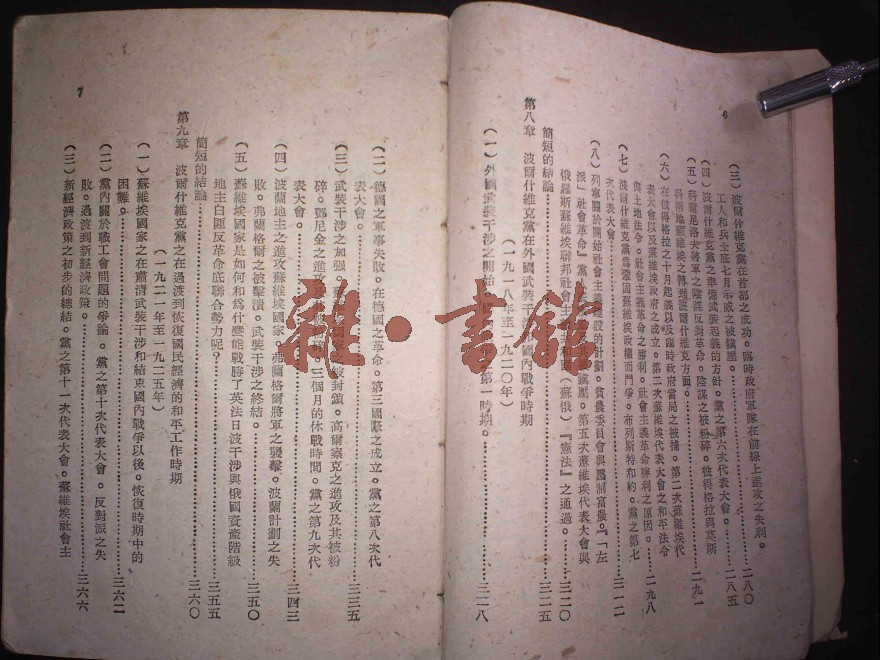 6
(三)波爾什維克黨在首都之成功。臨時政府軍隊在前線上進攻之失利。
工人和兵士底七月示威之被鎮壓。……二八〇
(四)波爾什維克黨之準備武裝起義的方針。黨之第六次代表大會。……二八五
(五)科爾尼洛夫將軍之陰謀反對革命。陰謀之被粉碎。彼得格拉與莫斯
科兩地蘇維埃之轉到波爾什維克方面。……二九一
(六)在彼得格拉之十月起義以及臨時政府當局之被捕。第二次蘇維埃代
表大會以及蘇維埃政府之成立。第二次蘇維埃代表大會之和平法令
與土地法令。社會主義革命之勝利。社會主義革命勝利之原因。……二九八
(七)波爾什維克黨為鞏固蘇維埃政權而鬥爭。布列斯特和約。黨之第七
次代表大會。……三一二
(八)列寧關於開始社會主義建設的計劃。貧農委員會與壓制富農。『「左
派」社會革命』黨人 鎮壓。第五次蘇維埃代表大會與
俄羅斯蘇維埃聯邦社會主義共和國(蘇俄)『憲法』之通過。……三二〇
簡短的結論……三二五
第八章 波爾什維克黨在外國武裝干涉和國內戰爭時期
(一九一八年至一九二〇年)
(一)外國武裝干涉之開始。國內戰爭之第一時期。……三二八
(二)德國之軍事失敗。在德國之革命。第三國際之成立。黨之第八次代
表大會。……三三五
(三)武裝干涉之加强。蘇 國家之被封鎖。高爾察克之進攻及其被粉
碎。鄧尼金之進攻 。三個月的休戰時間。黨之第九次代
表大會。……三四三
(四)波蘭地主之進攻蘇維埃國家。弗蘭格爾將軍之襲擊。波蘭計劃之失
敗。弗蘭格爾之被擊潰。武裝干涉之終結。……三五〇
(五)蘇維埃國家是如何和為什麼能戰勝了英法日波干涉與俄國資產階級
地主白匪反革命底聯合勢力呢?……三五五
簡短的結論……三六〇
第九章 波爾什維克黨之在過渡到恢復國民經濟的和平工作時期
(一九二一年至一九二五年)
(一)蘇維埃國家之在肅清武裝干涉和結束國內戰爭以後。恢復時期中的
困難。……三六二
(二)黨內關於職工會問題的爭論。黨之第十次代表大會。反對派之失
敗。過渡到新經濟政策。……三六六
(三)新經濟政策之初步的總結。黨之第十一次代表大會。蘇維埃社會主
7
雜·書館